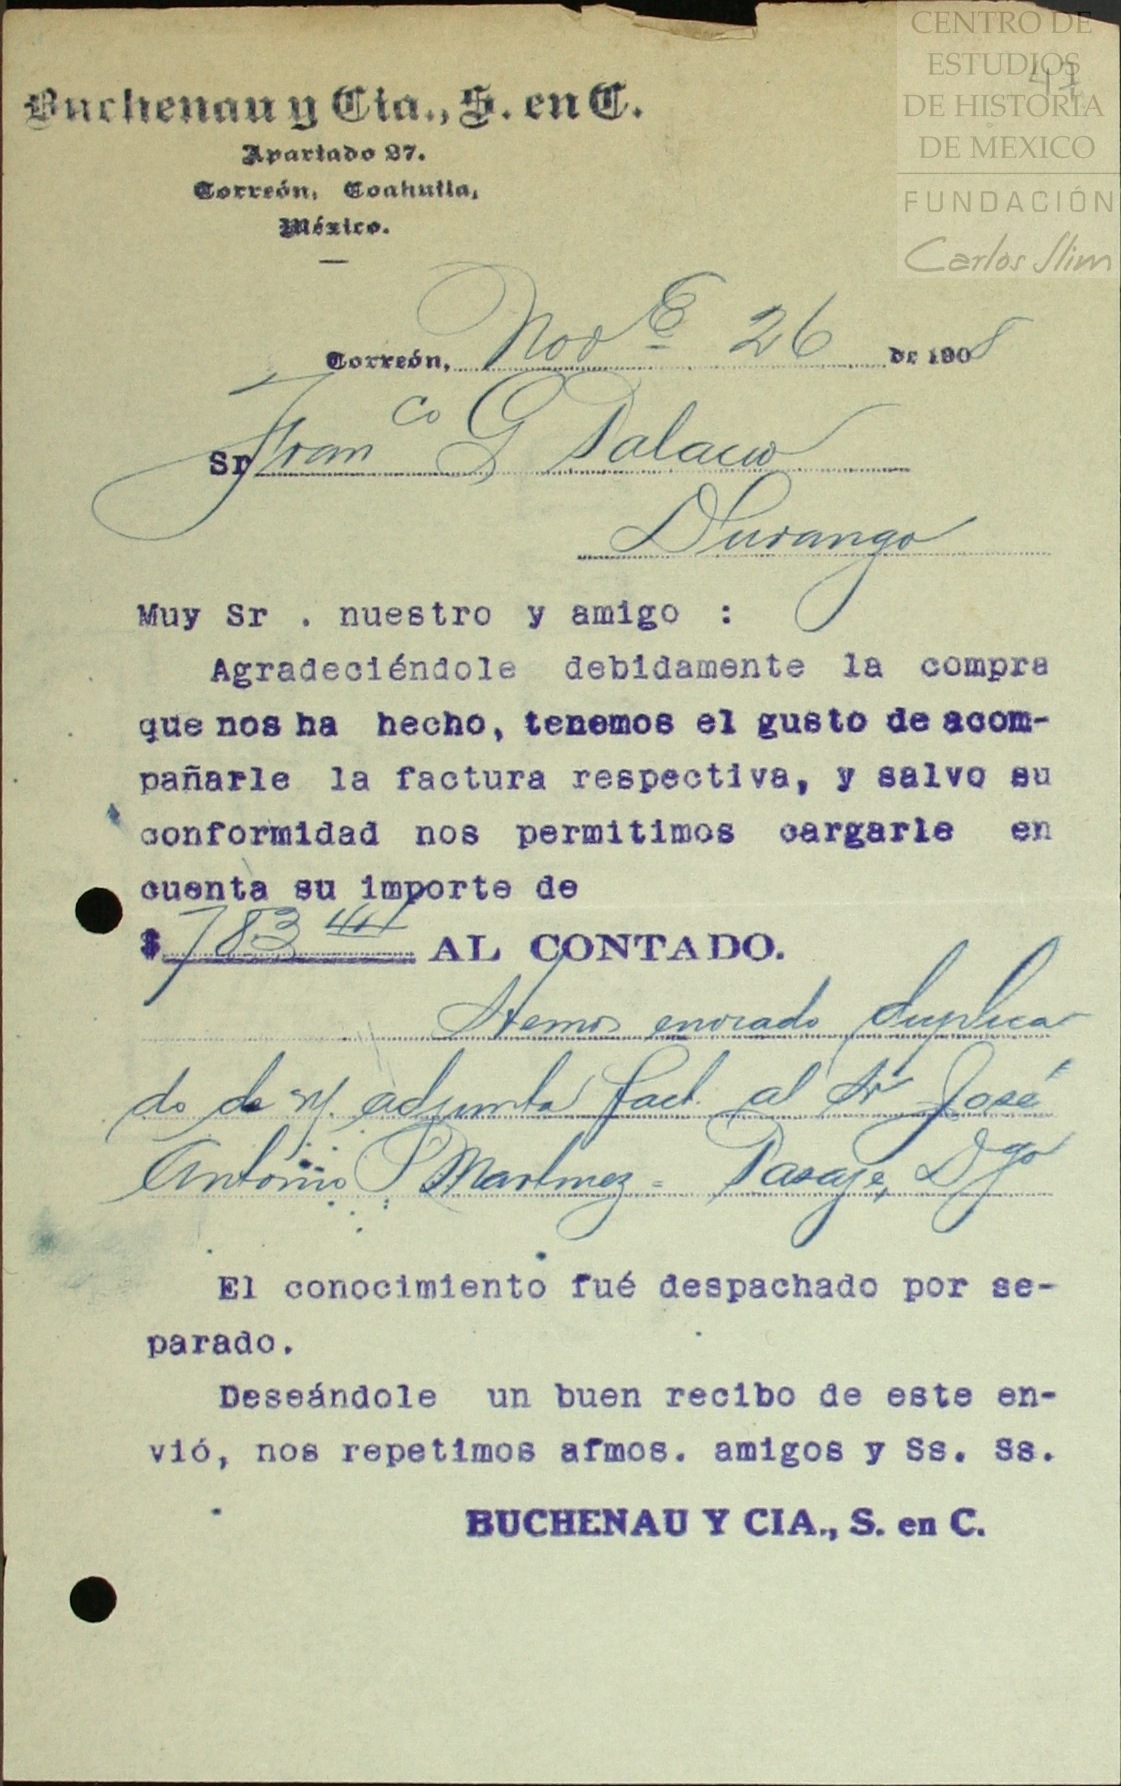 CENTRO DE
ESTUDIOS
DE HISTORIA
DE MEXICO
FUNDACIÓN
Carlos Slim
Buchenau y Cia., S. en C.
Apartado 27.
Torreón, Coahuila,
México.
Torreón, Novᵉ 26 de 1908
Sr Franᶜᵒ G Palacio
Durango
Muy Sr . nuestro y amigo :
Agradeciéndole debidamente la compra
que nos ha hecho, tenemos el gusto de acom-
pañarle la factura respectiva, y salvo su
conformidad nos permitimos cargarle en
cuenta su importe de
$ 783 AL CONTADO.
Hemos enviado duplica
do de adjunta fact. al Sr José
Antonio P Martinez - Pasaje, Dgo
El conocimiento fué despachado por se-
parado.
Deseándole un buen recibo de este en-
vió, nos repetimos afmos. amigos y Ss. Ss.
BUCHENAU Y CIA., S. en C.